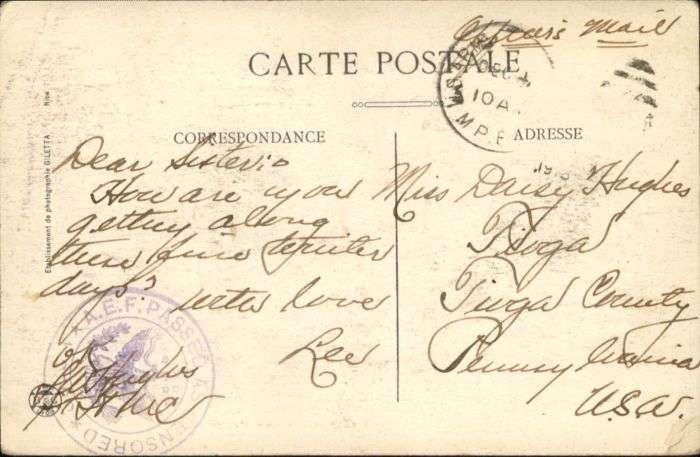 Mail
CARTE POSTALE
DEC
10 A
M.P.E
CORRESPONDANCE
ADRESSE
Dear Sister:
How are you
getting along
these fine winter
days? with love
Lee
OK
Hughes
A.E.F. PASSED AS CENSORED
Miss Daisy Hughes
Tioga
Tioga County
Pennsylvania
U.S.A.
Etablissement de photographie GILETTA Nice